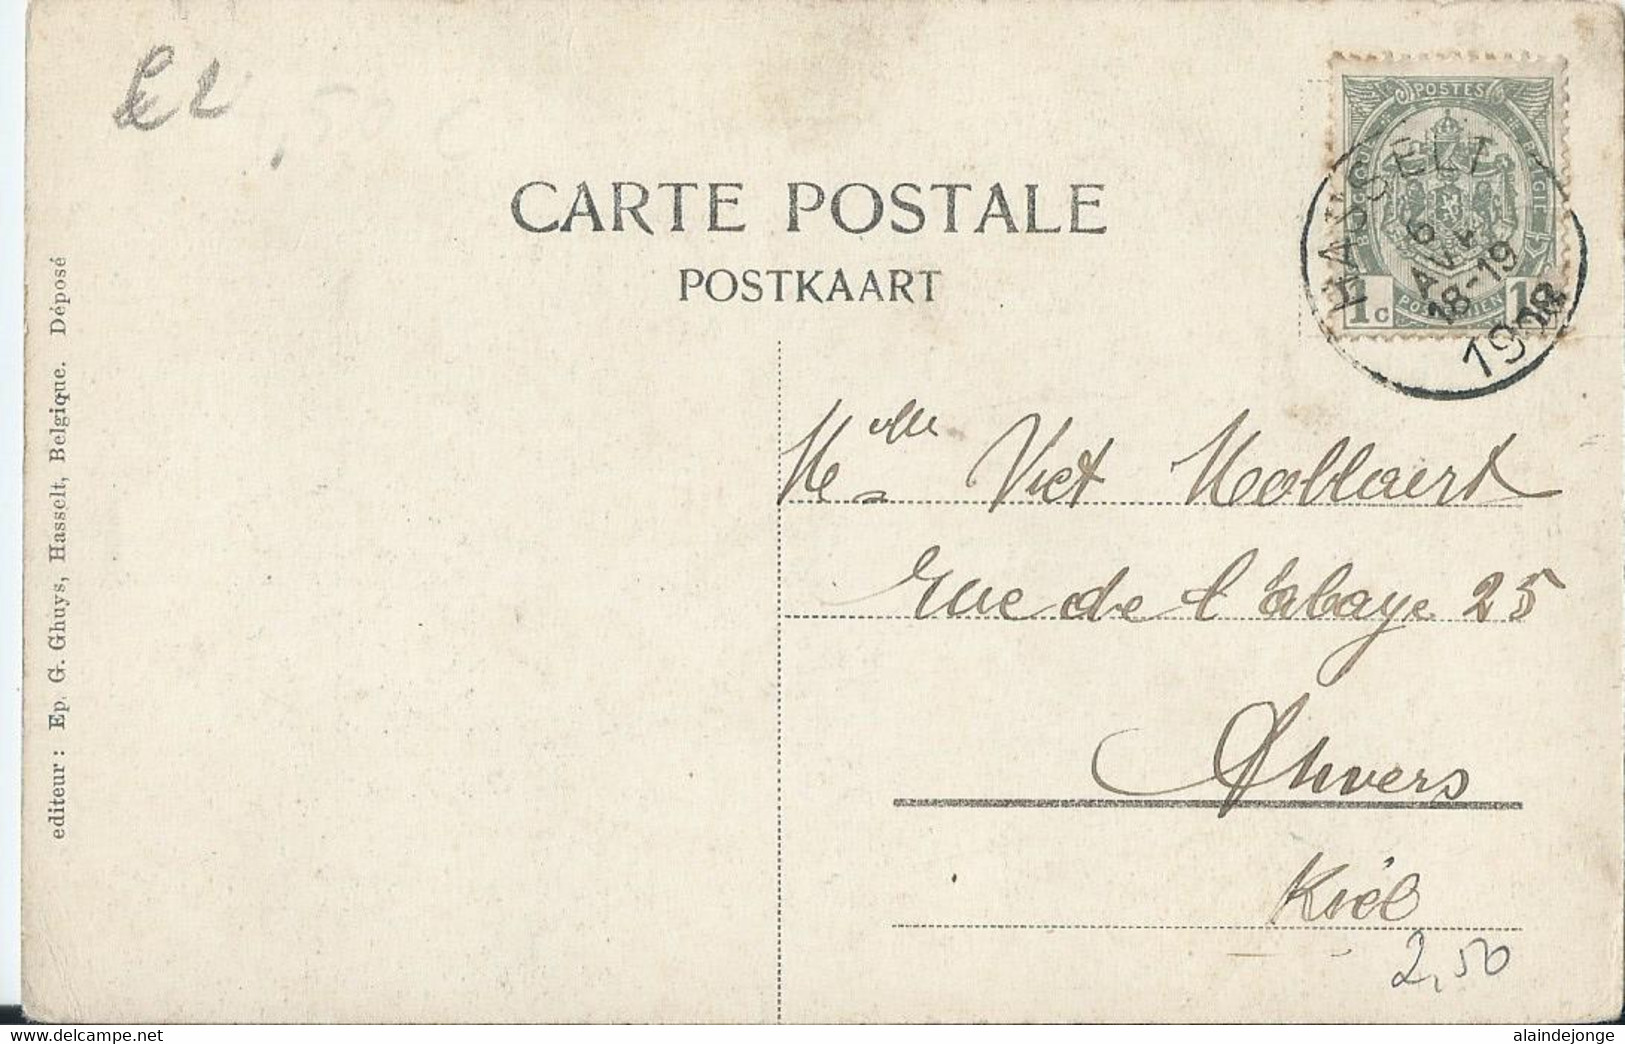 CARTE POSTALE
POSTKAART
editeur : Ep. G. Ghuys, Hasselt, Belgique. Déposé
POSTES
BELGIQUE
BELGIE
POSTERIJEN
1c 1c
HASSELT
6 AVR
18-19
1908
Melle Vict Mollaert
Rue de l'abaye 25
Anvers
Kiel
2,50
delcampe.net
alaindejonge